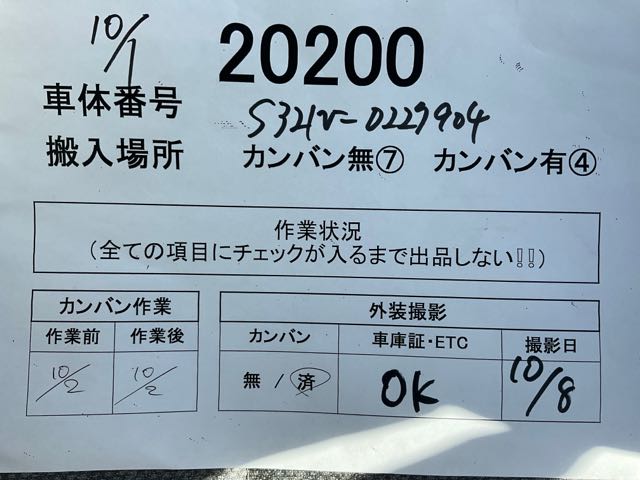 10/1
20200
車体番号 S321V-0229904
搬入場所 カンバン無⑦ カンバン有④
作業状況
(全ての項目にチェックが入るまで出品しない!!)
カンバン作業
作業前 作業後
10/2 10/2
外装撮影
カンバン 車庫証・ETC 撮影日
無 / 済 OK 10/8